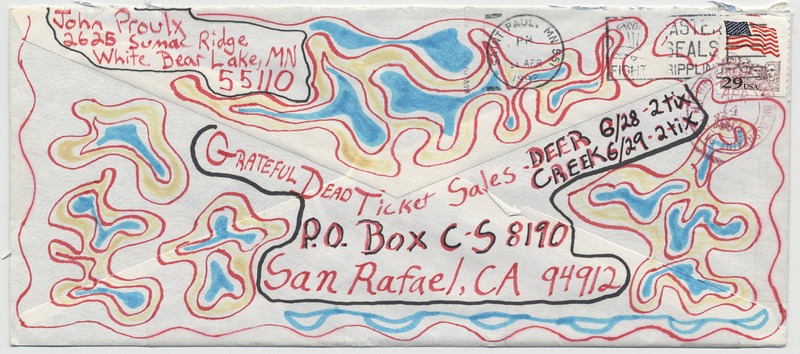 John Proulx
2625 Sumac Ridge
White Bear Lake, MN
55110
SAINT PAUL, MN 551
PM
APR
1992
EASTER
SEALS
FIGHT CRIPPLING
29 USA
GRATEFUL DEAD TICKET SALES - DEER 6/28 - 2 tix
CREEK 6/29 - 2 tix
P.O. BOX C-S 8190
San Rafael, CA 94912